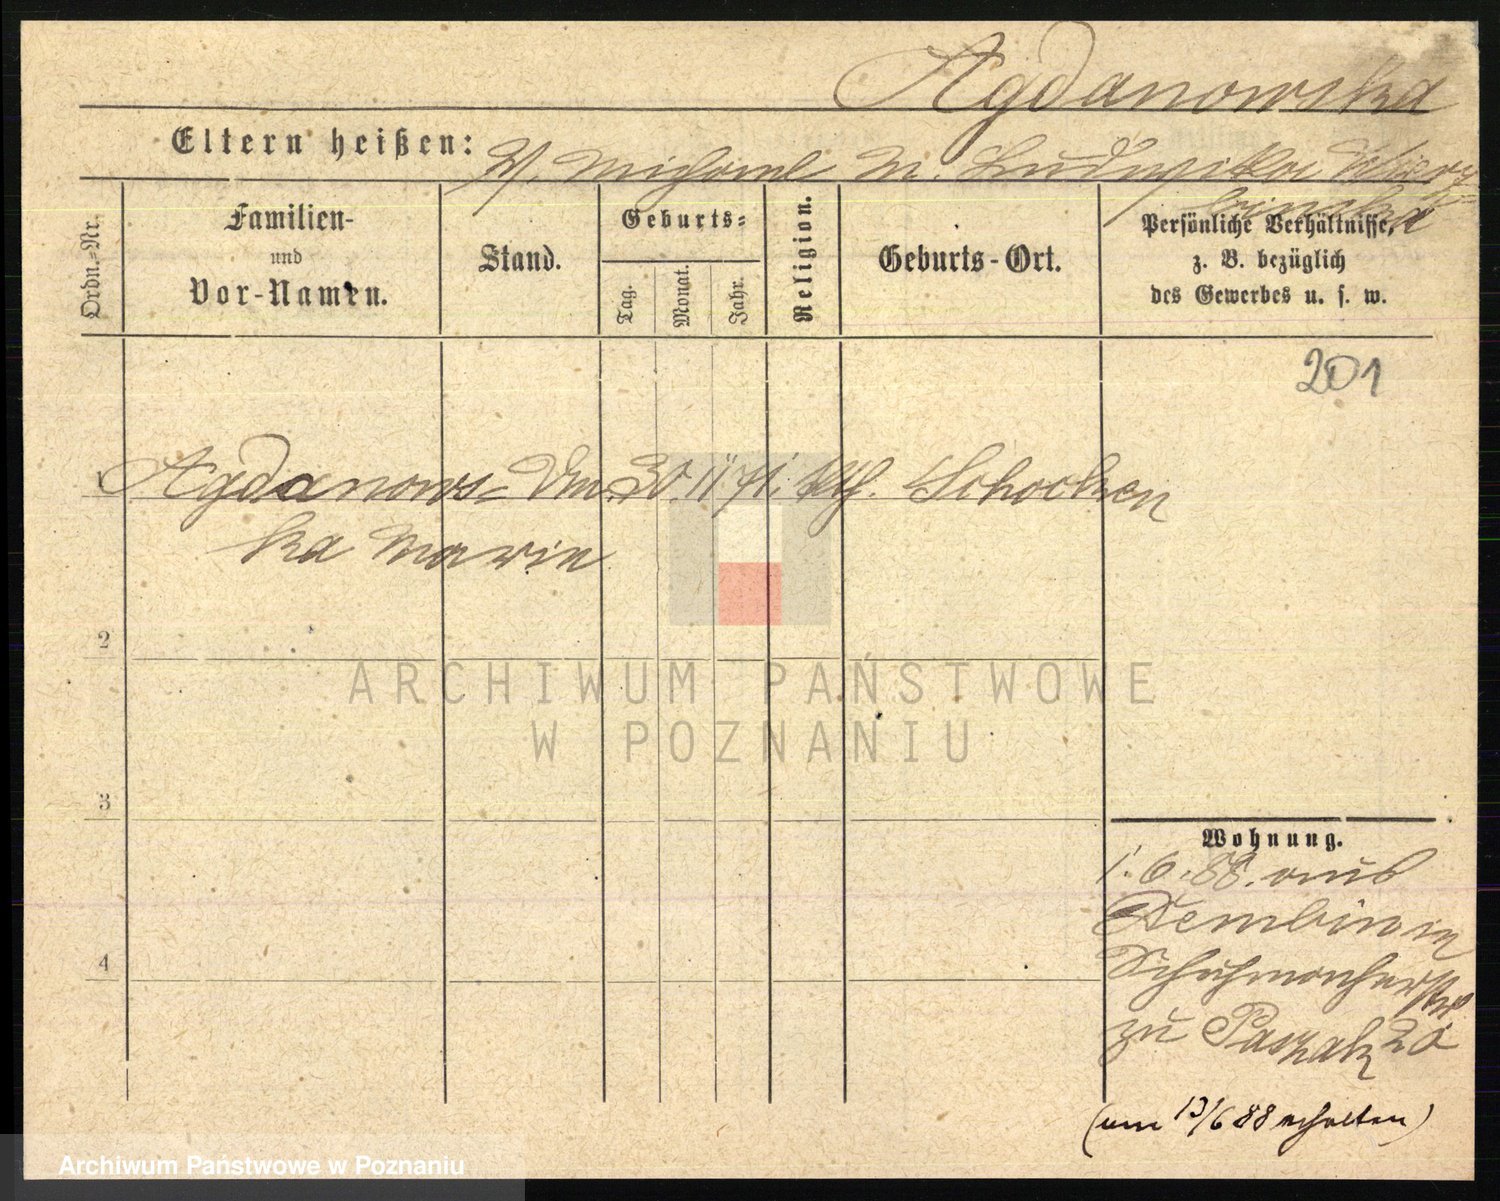 Agdanowska
Eltern heißen: V. Michael M. Ludwika Wierz
binska
Ordn.-Nr.
Familien-
und
Vor-Namen.
Stand.
Geburts-
Tag.
Monat.
Jahr.
Religion.
Geburts-Ort.
Persönliche Verhältnisse,
z. B. bezüglich
des Gewerbes u. s. w.
201
1 Agdanows- 30. 11 71. kth. Schocken
ka Marie
2
ARCHIWUM PAŃSTWOWE
W POZNANIU
3
4
Wohnung.
1. 6. 88. aus
Dembin in
Schuhmacherstr
zu Paszak 20
(am 13/6 88 erhalten)
Archiwum Państwowe w Poznaniu